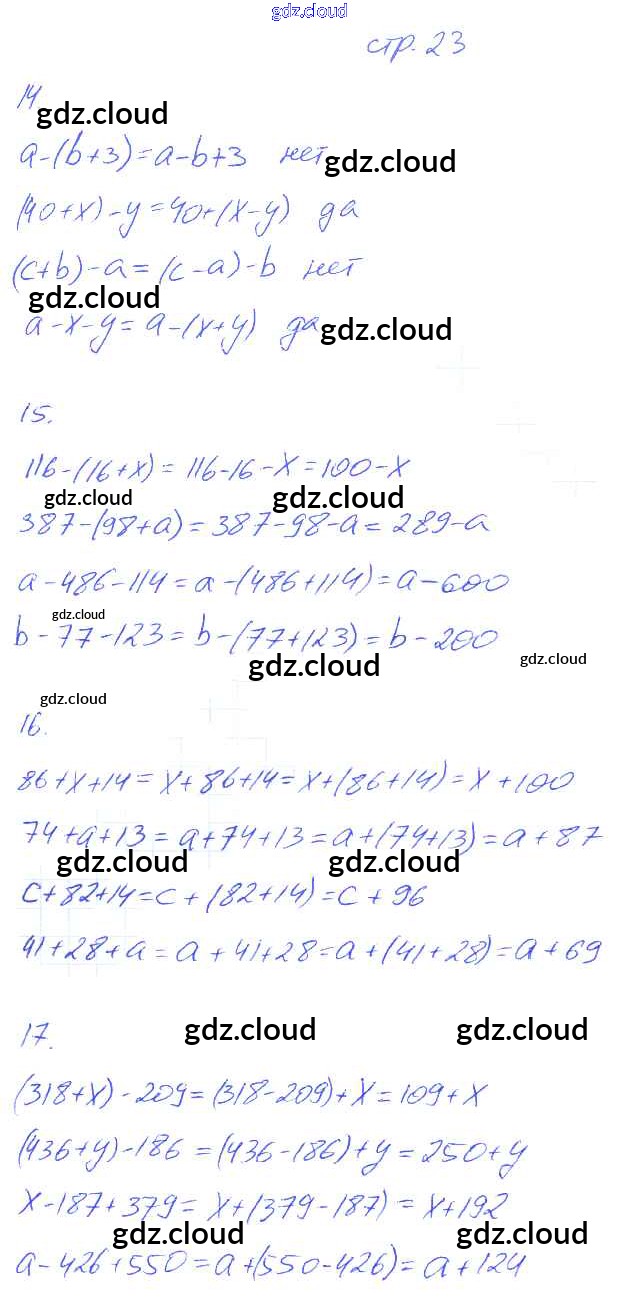 gdz.cloud
стр. 23
14
gdz.cloud
a-(b+3)=a-b+3 нет
gdz.cloud
(40+x)-y=40+(x-y) да
(c+b)-a=(c-a)-b нет
gdz.cloud
a-x-y=a-(x+y) да
gdz.cloud
15.
116-(16+x)=116-16-x=100-x
gdz.cloud gdz.cloud
387-(98+a)=387-98-a=289-a
a-486-114=a-(486+114)=a-600
gdz.cloud
b-77-123=b-(77+123)=b-200
gdz.cloud gdz.cloud
gdz.cloud
16.
86+x+14=x+86+14=x+(86+14)=x+100
74+a+13=a+74+13=a+(74+13)=a+87
gdz.cloud gdz.cloud
c+82+14=c+(82+14)=c+96
41+28+a=a+41+28=a+(41+28)=a+69
17.
gdz.cloud gdz.cloud
(318+x)-209=(318-209)+x=109+x
(436+y)-186=(436-186)+y=250+y
x-187+379=x+(379-187)=x+192
gdz.cloud gdz.cloud
a-426+550=a+(550-426)=a+124